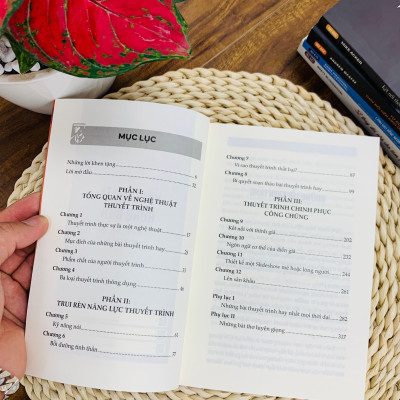 MỤC LỤC
Những lời khen tặng
Lời mở đầu
PHẦN I:
TỔNG QUAN VỀ NGHỆ THUẬT
THUYẾT TRÌNH
Chương 1
Thuyết trình thực sự là một nghệ thuật
Chương 2
Mục đích của những bài thuyết trình hay
Chương 3
Phẩm chất của người thuyết trình
Chương 4
Ba loại thuyết trình thông dụng
PHẦN II:
TRUI RÈN NĂNG LỰC THUYẾT TRÌNH
Chương 5
Kỹ năng nói
Chương 6
Bồi dưỡng tinh thần
Chương 7
Vì sao thuyết trình thất bại?
Chương 8
Bí quyết soạn thảo bài thuyết trình hay
PHẦN III:
THUYẾT TRÌNH CHINH PHỤC
CÔNG CHÚNG
Chương 9
Kết nối với thính giả 202
Chương 10
Ngôn ngữ cơ thể của diễn giả
Chương 11
Thiết kế một Slideshow mê hoặc lòng người
Chương 12
Lên sân khấu 261
Phụ lục I
Những bài thuyết trình hay nhất mọi thời đại
Phụ lục II
Những bài thơ luyện giọng 327